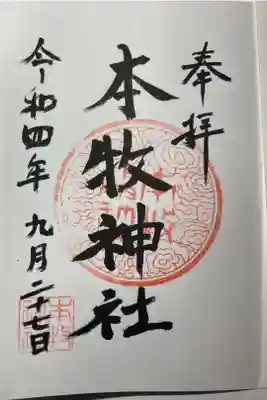 奉拝
本牧神社
令和四年九月二十七日